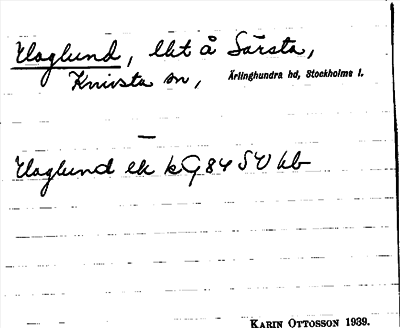 Haglund, lht å Särsta,
Knivsta sn, Ärlinghundra hd, Stockholms l.
—
Haglund ek kG84 SV kb
KARIN OTTOSSON 1939.